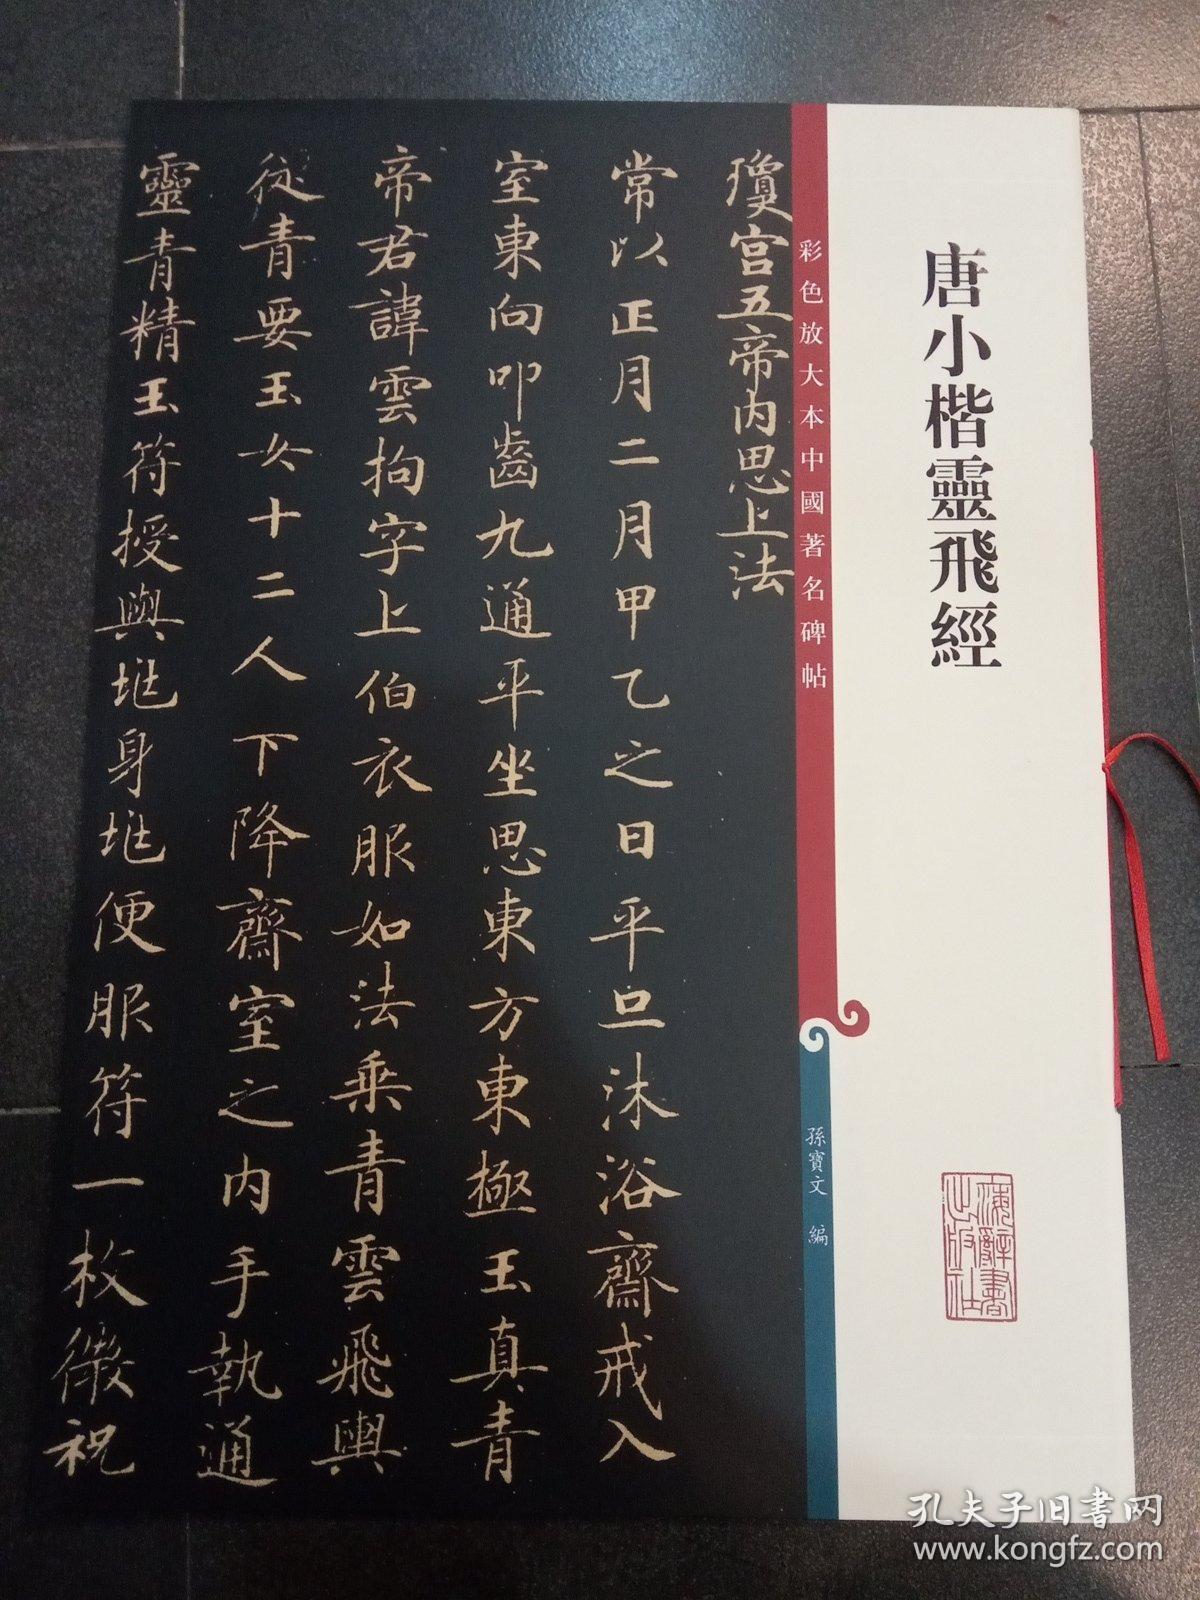 唐小楷靈飛經
彩色放大本中國著名碑帖
孫寶文 編
海辭書出版社
瓊宮五帝內思上法
常以正月二月甲乙之日平旦沐浴齋戒入
室東向叩齒九通平坐思東方東極玉真青
帝君諱雲拘字上伯衣服如法乘青雲飛輿
從青要玉女十二人下降齋室之內手執通
靈青精玉符授與地身地便服符一枚微祝
孔夫子旧书网
www.kongfz.com